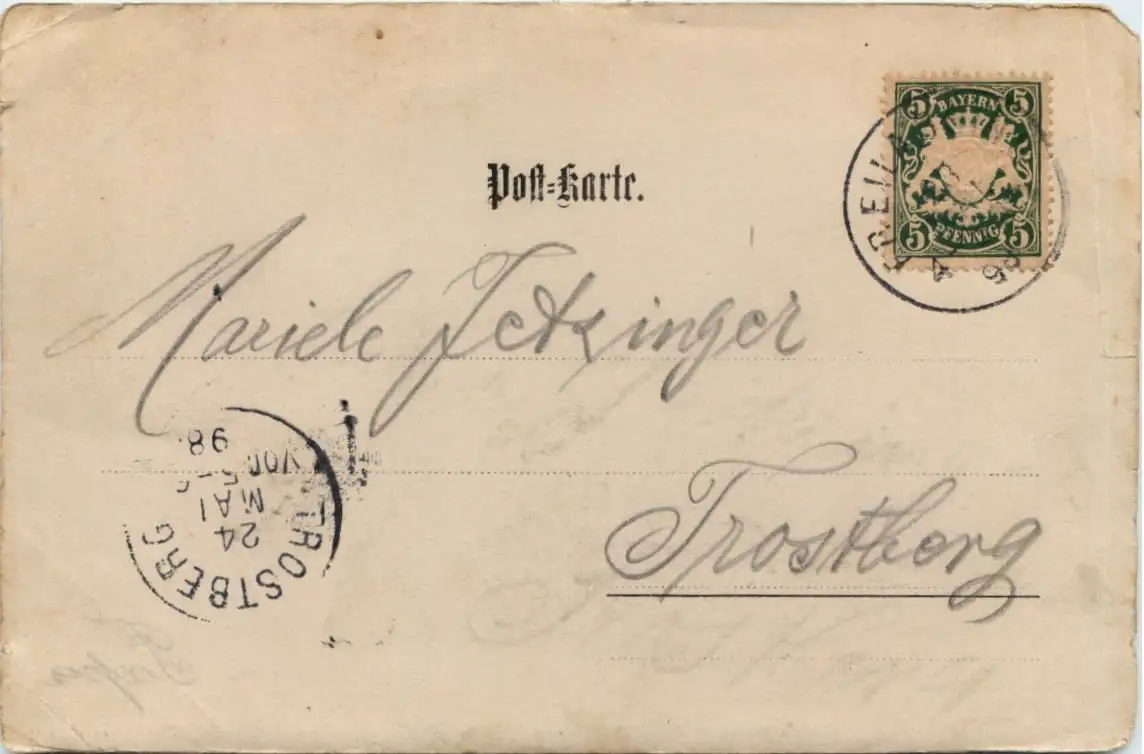 5 BAYERN 5
Post-Karte.
5 PFENNIG 5
Mariele Jetzinger
Trostberg
TROSTBERG
24
MAI
VOR
98